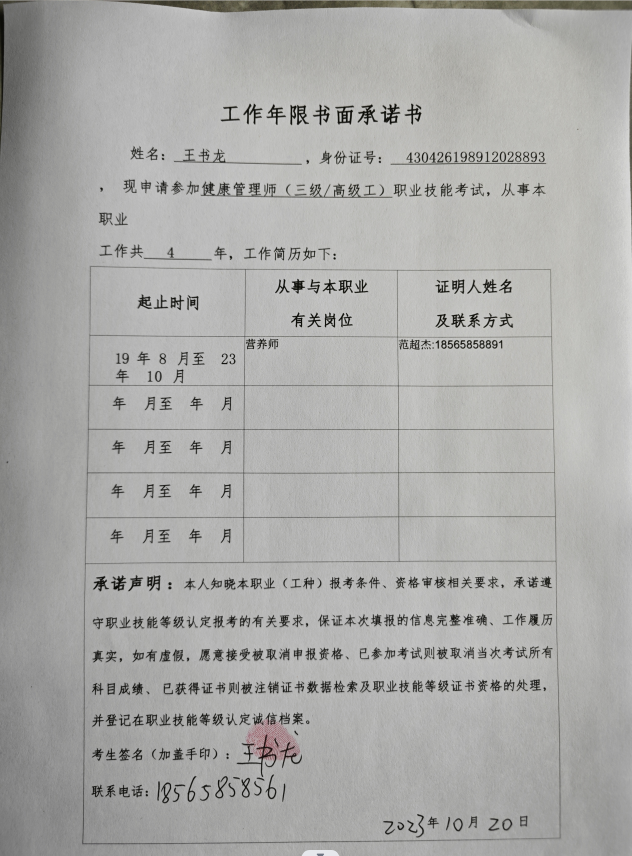 工作年限书面承诺书
姓名：王书龙，身份证号：430426198912028893
，现申请参加健康管理师（三级/高级工）职业技能考试，从事本
职业
工作共 4 年，工作简历如下：
起止时间
从事与本职业
有关岗位
证明人姓名
及联系方式
19 年 8 月至 23
年 10 月
营养师
范超杰:18565858891
年 月至 年 月
年 月至 年 月
年 月至 年 月
年 月至 年 月
承诺声明：本人知晓本职业（工种）报考条件、资格审核相关要求，承诺遵
守职业技能等级认定报考的有关要求，保证本次填报的信息完整准确、工作履历
真实，如有虚假，愿意接受被取消申报资格、已参加考试则被取消当次考试所有
科目成绩、已获得证书则被注销证书数据检索及职业技能等级证书资格的处理，
并登记在职业技能等级认定诚信档案。
考生签名（加盖手印）：王书龙
联系电话：18565858561
2023年10月20日